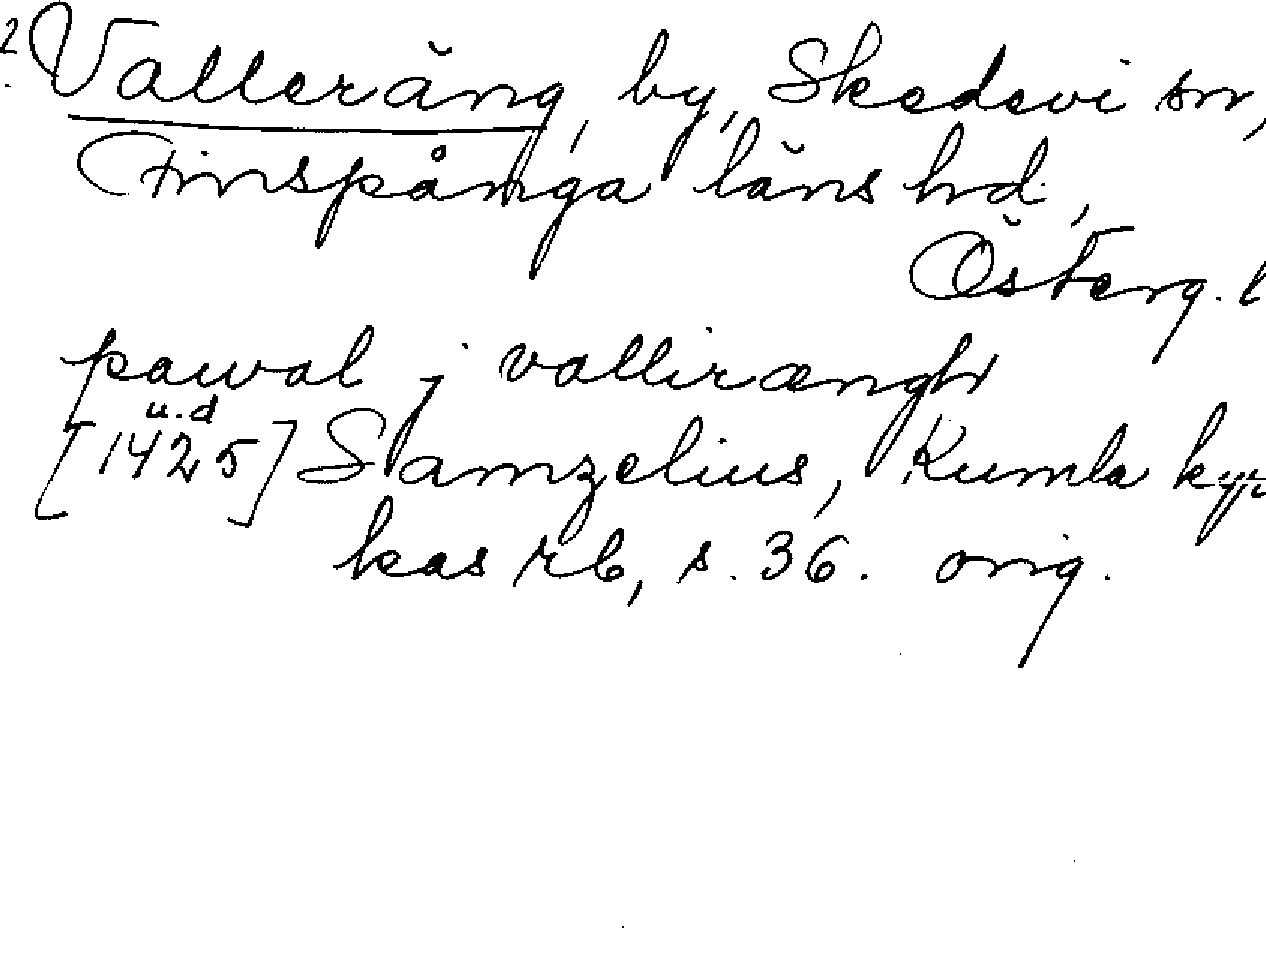 2. Valleräng, by, Skedevi sn,
Finspånga läns hd,
Österg. l
pawal j vallirængh
u.d
[1425] Samzelius, Kumla kyr
kas rb, s. 36. orig.